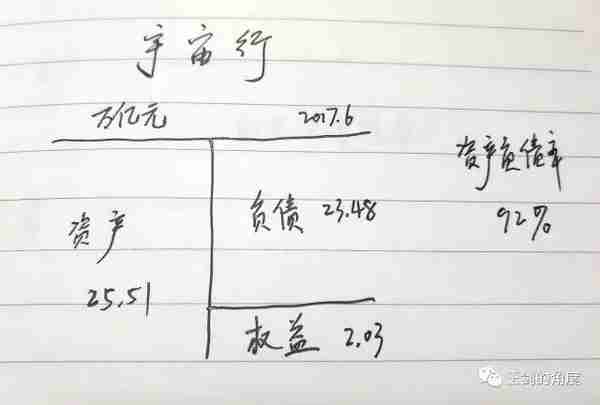 宇宙行
万亿元 2017.6
资产负债率
92%
负债 23.48
资产
25.51
权益 2.03
王剑的角度